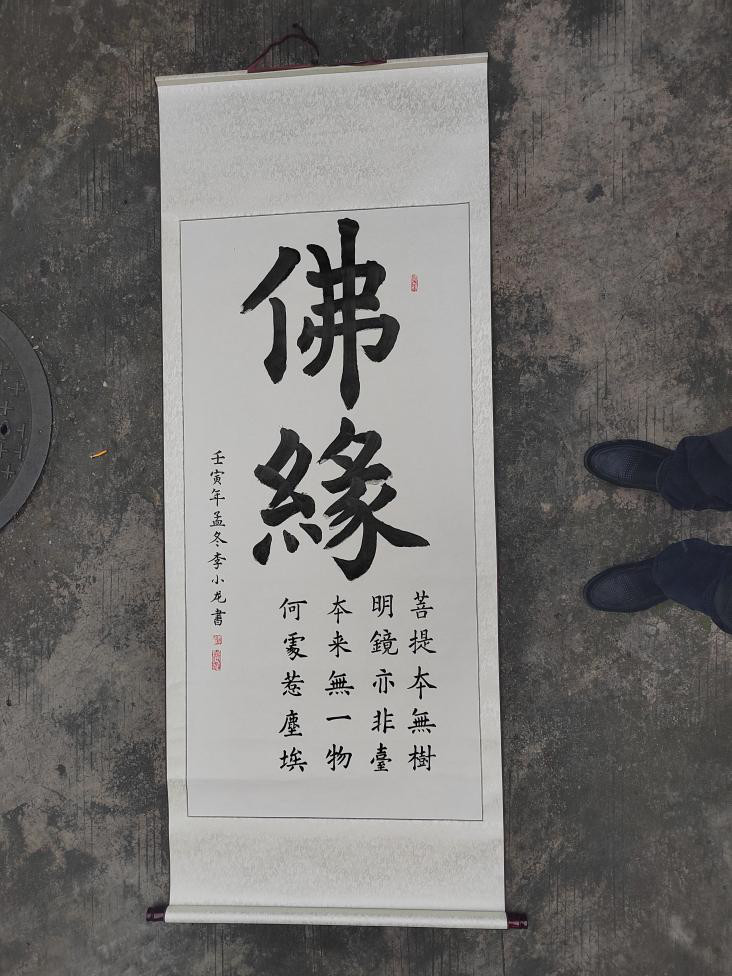 佛緣
菩提本無樹
明鏡亦非臺
本来無一物
何處惹塵埃
壬寅年孟冬李小龙書